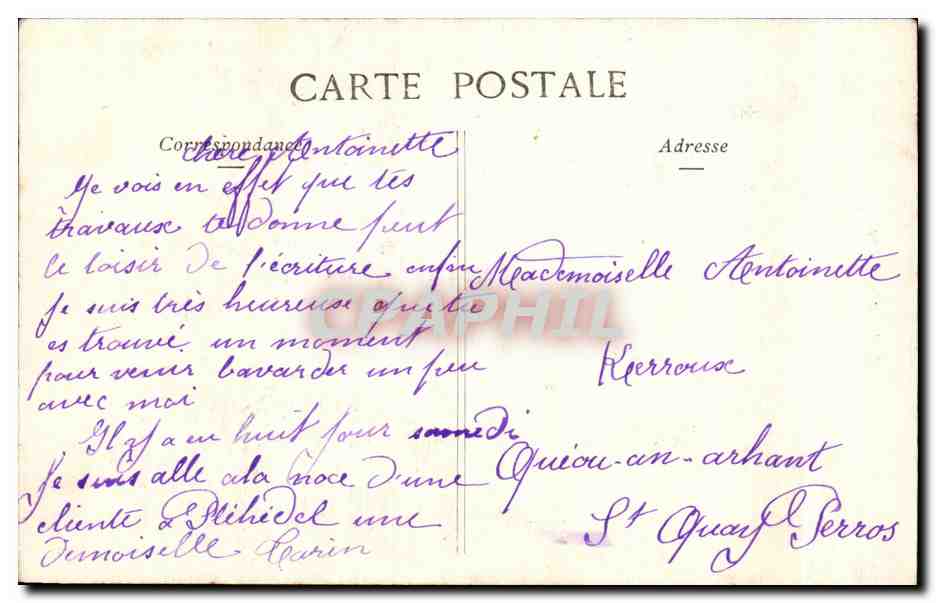 CARTE POSTALE
Correspondance
Adresse
chère Antoinette
Je vois en effet que tes
travaux te donne peut
le loisir de l'écriture enfin
je suis très heureuse que tu
es trouvé un moment
pour venir bavarder un peu
avec moi
Il y a eu huit jour samedi
je suis alle a la noce d'une
cliente a Pléhédel une
demoiselle Carin
Mademoiselle Antoinette
Kerroux
Quéou-an-arhant
St Quay Perros
CPAPHIL